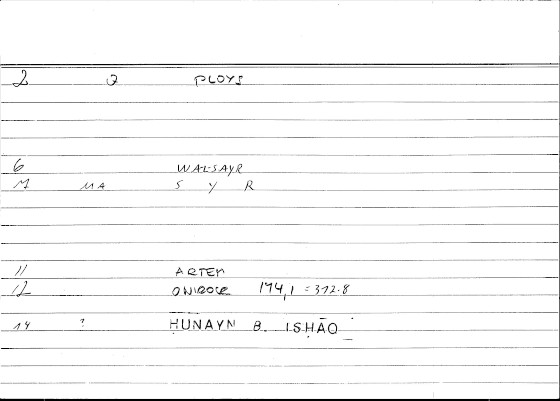 2 2 PLOYS
6 WALSAYR
M MA S Y R
11 ARTEM
12 ONIROCR 174,1 = 372.8
14 ? ḤUNAYN B. ISḤĀQ